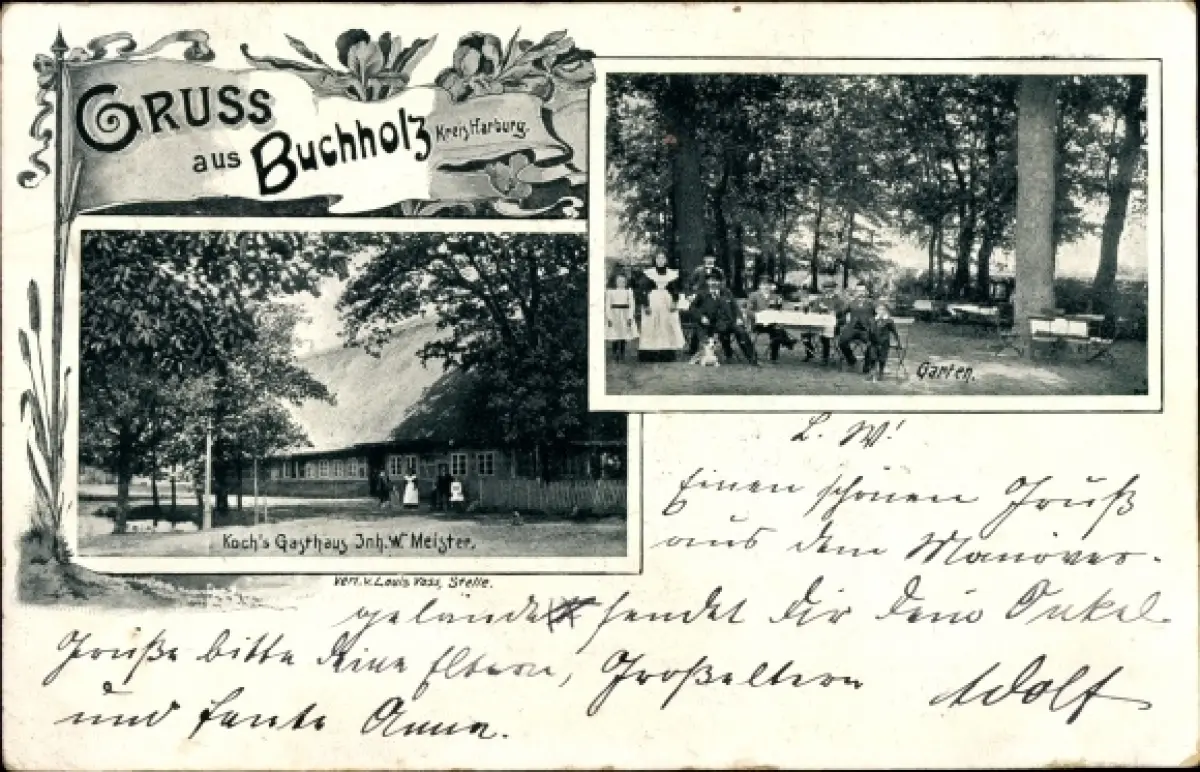 GRUSS
aus Buchholz
Kreis Harburg.
Garten.
Koch's Gasthaus Inh. W. Meister.
Verl. v. Louis Voss, Stelle.
L. W!
Einen schönen Gruß
aus dem Manöver-
gelände sendet dir dein Onkel
Adolf
Grüße bitte deine Eltern, Großeltern
und Tante Anna.